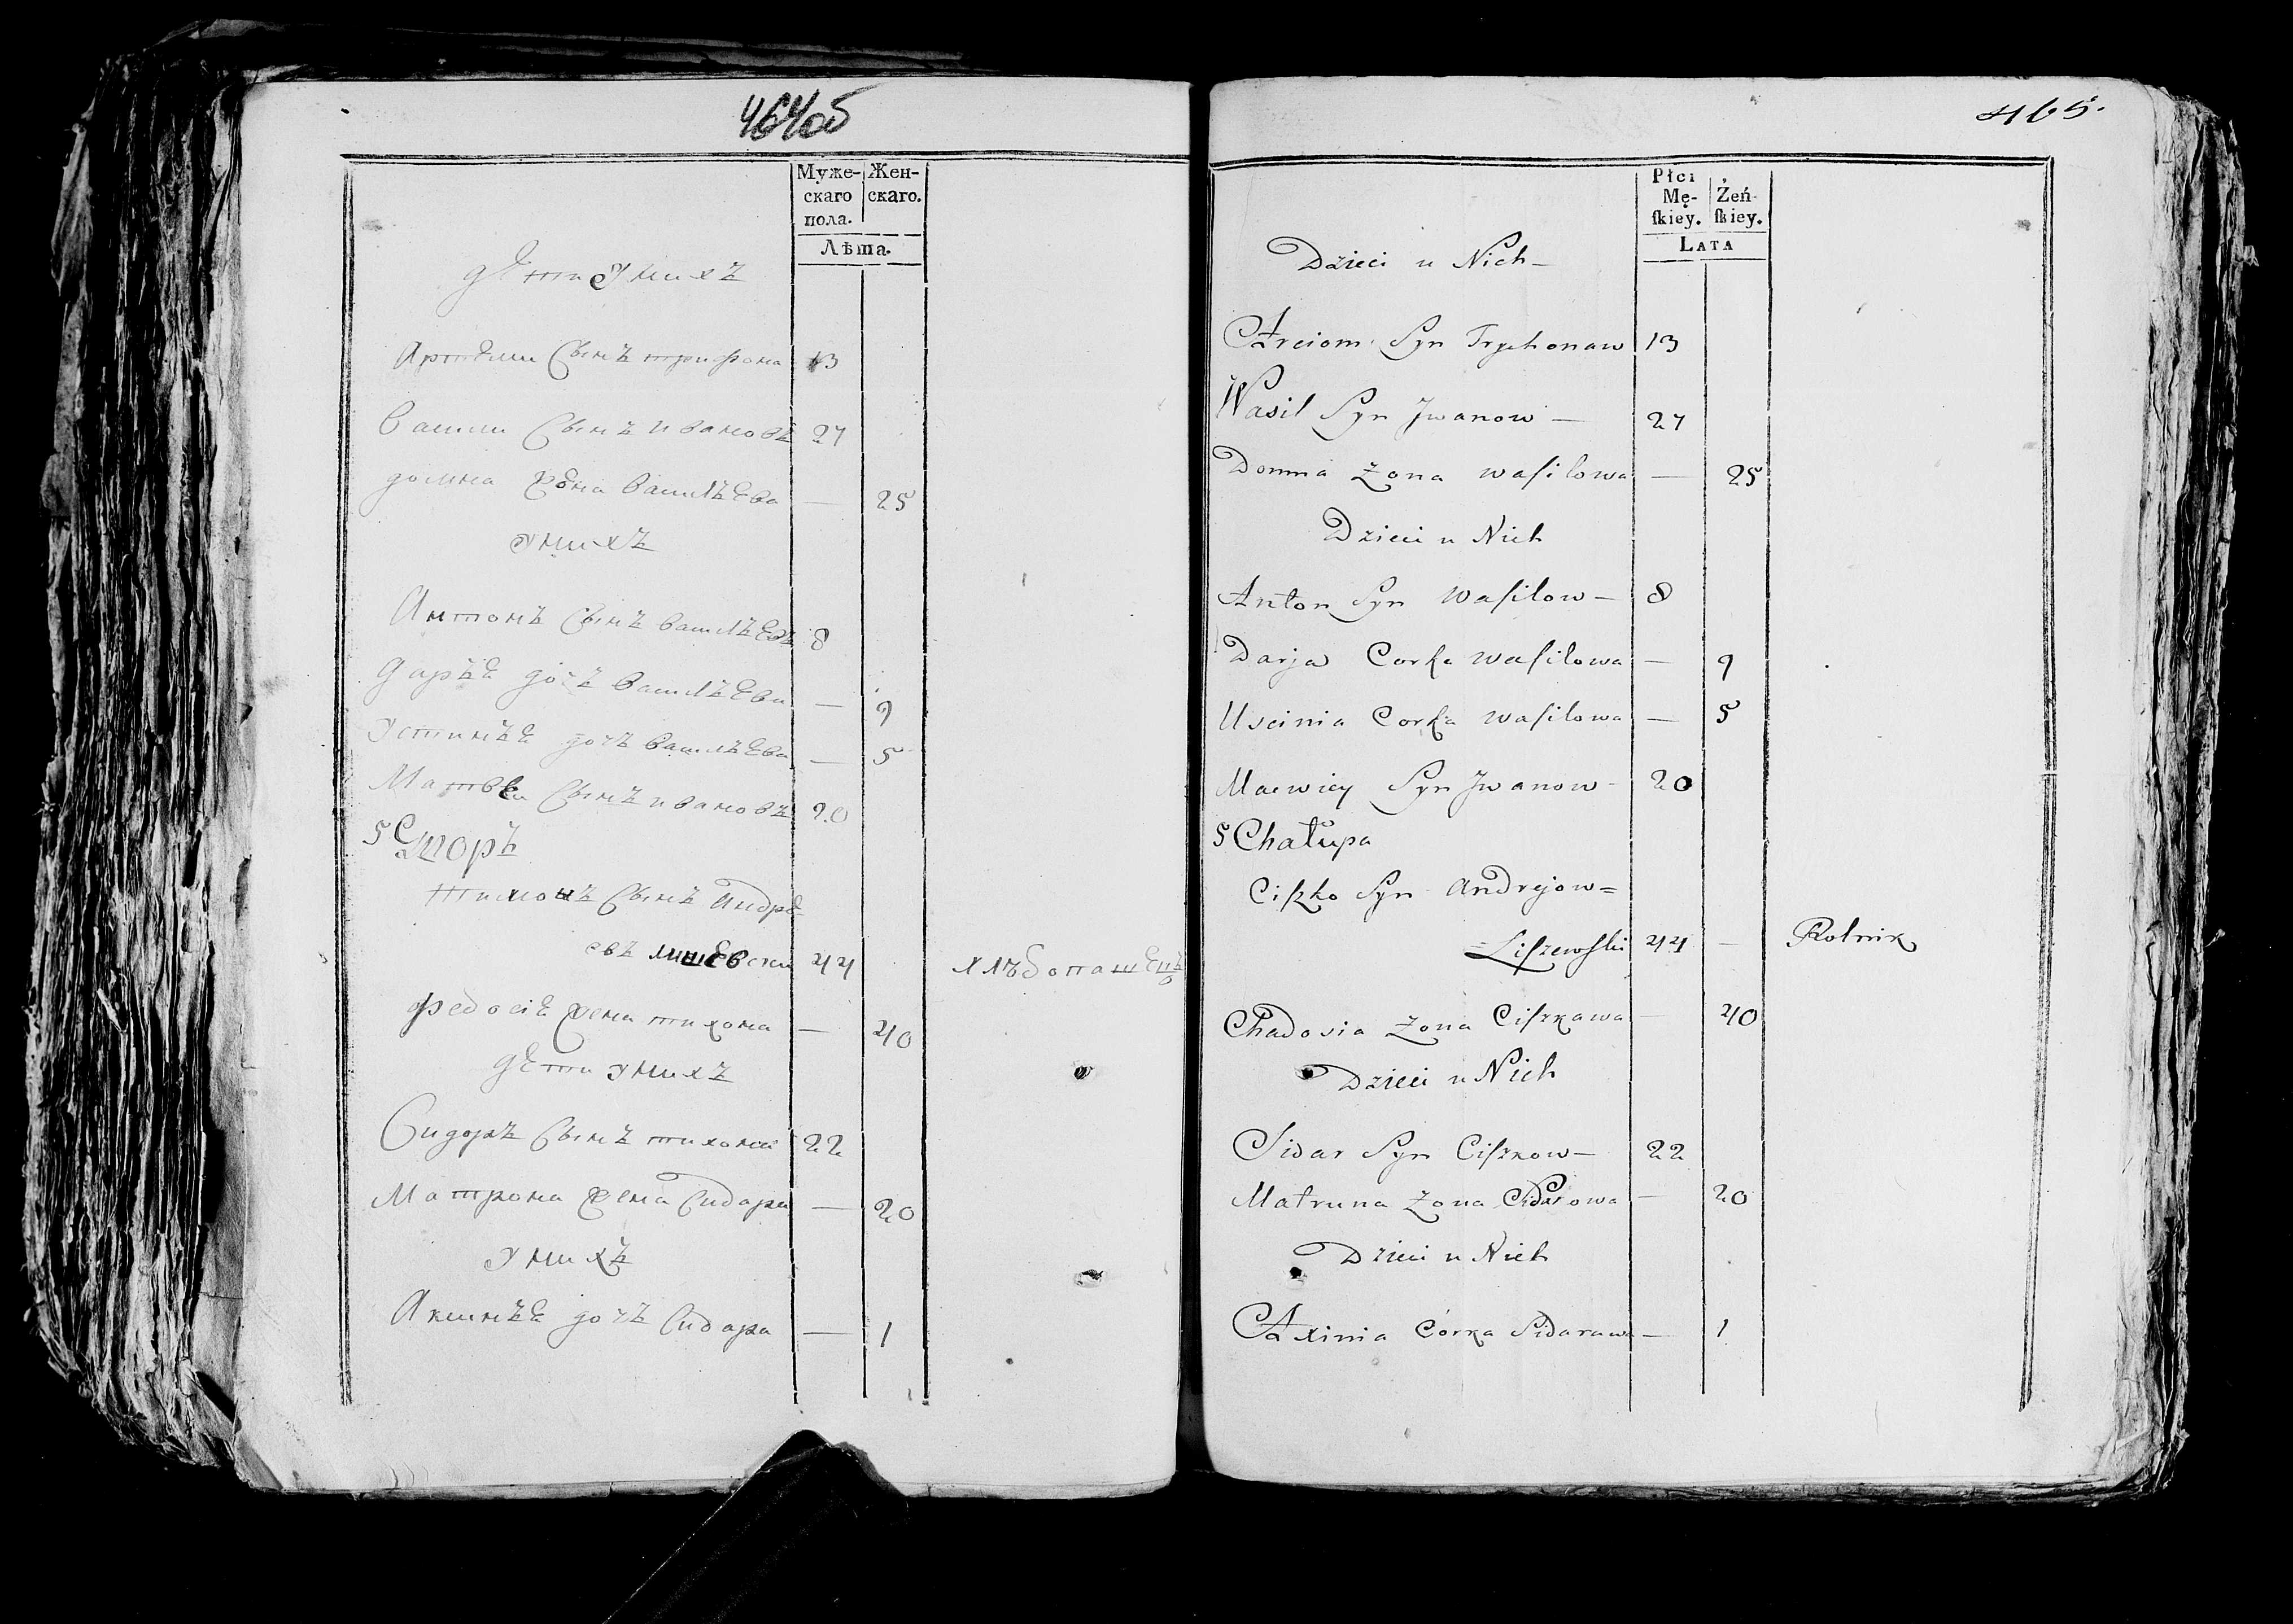 464об
Муже- Жен-
скаго скаго.
пола.
Лѣта.
дети у нихъ
Артеми сынъ трифона 13
Васили сынъ ивановъ 27
домна жена василъева — 25
у нихъ
Антонъ сынъ василъевъ 8
Даръе дочъ василъева — 9
Устинъе дочъ василъева — 5
Матвеи сынъ ивановъ 20
5 Дворъ
Тихонъ сынъ андре
евъ лишевски 44 хлъбопашецъ
федосіе жена тихона — 40
дети у нихъ
Сидоръ сынъ тихона 22
Матрона жена сидора — 20
у нихъ
Аксинъе дочъ сидора — 1
465.
Płci
Mę- Żeń-
ſkiey. ſkiey.
LATA
Dzieci u Nich —
Arciom Syn Trychonaw 13
Wasil Syn Jwanow — 27
Domna Zona Waſilowa — 25
Dzieci u Nich
Anton Syn Waſilow — 8
Darja Corka Waſilowa — 9
Uscinia Corka Waſilowa — 5
Macwiey Syn Jwanow - 20
5 Chałupa
Ciſzko Syn Andrejow =
= Liſzewſki 44 — Rolnik
Chadosia Zona Ciſzkawa — 40
Dzieci u Nich
Sidar Syn Ciſzkow — 22
Matruna Zona Sidarowa — 20
Dzieci u Nich
Axinia Córka Sidarawa — 1